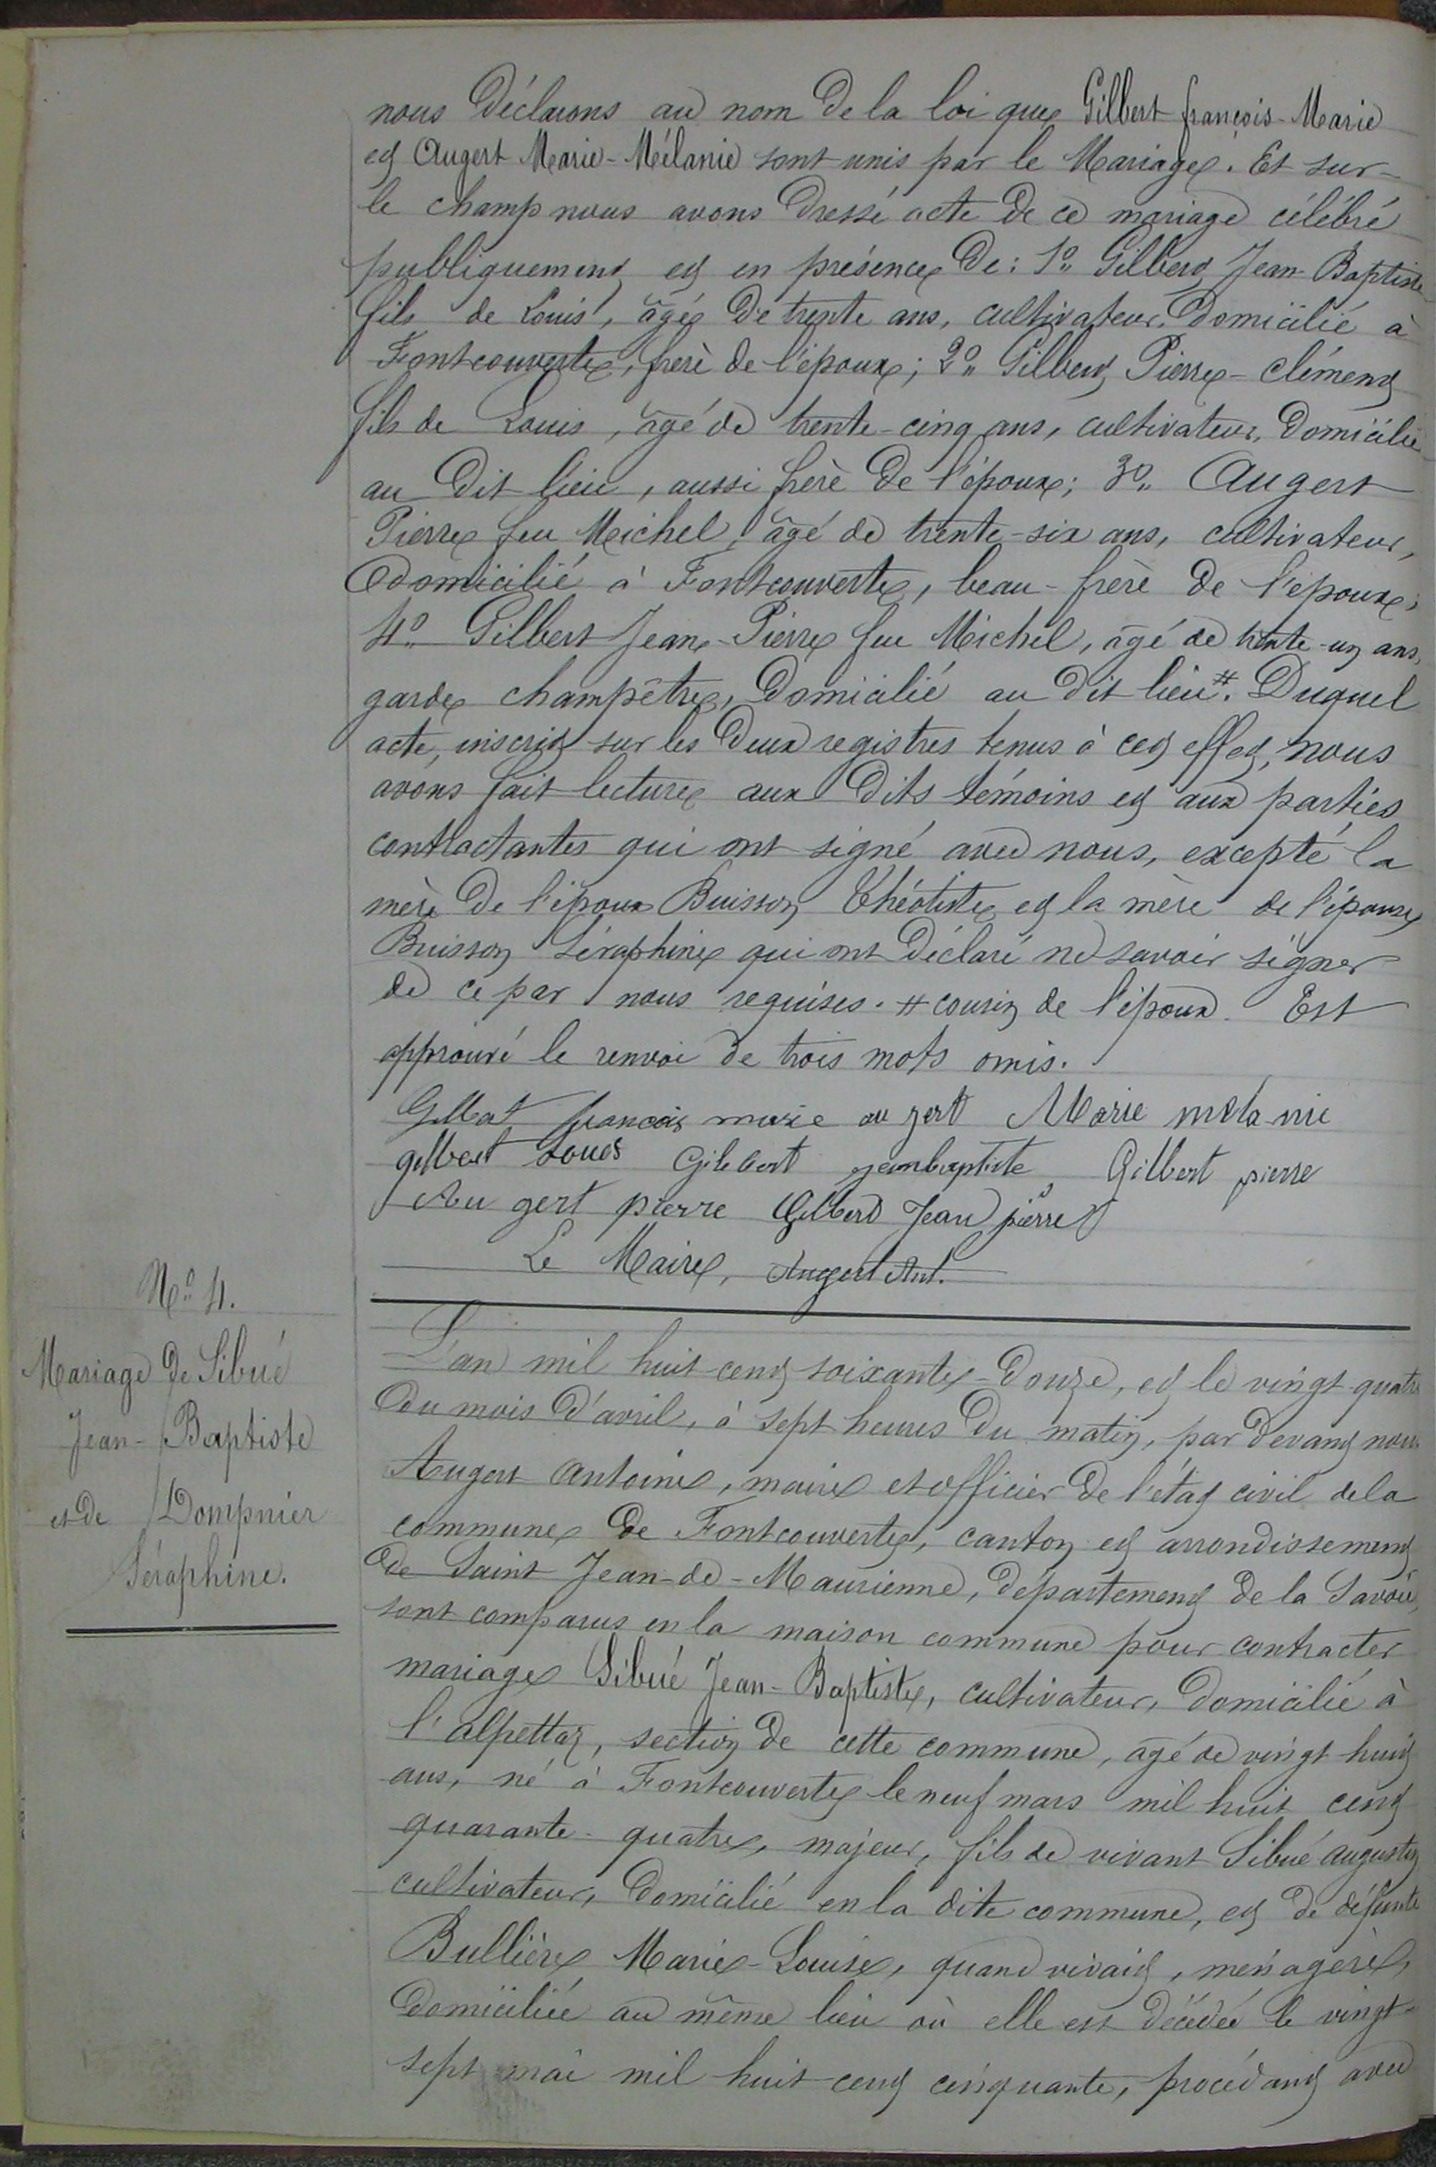 nous déclarons au nom de la loi que Gilbert françois-Marie
et Augert Marie-Mélanie sont unis par le Mariage. Et sur-
le champ nous avons dressé acte de ce mariage célébré
publiquement et en présence de: 1° Gilbert Jean-Baptiste
fils de Louis, âgé de trente ans, cultivateur, domicilié à
Fontcouverte, frère de l'époux; 2° Gilbert Pierre-Clément
fils de Louis, âgé de trente-cinq ans, cultivateur, domicilié
au dit lieu, aussi frère de l'époux; 3° Augert
Pierre feu Michel, âgé de trente-six ans, cultivateur,
domicilié à Fontcouverte, beau-frère de l'époux;
4° Gilbert Jean-Pierre feu Michel, âgé de trente-un ans,
garde champêtre, domicilié au dit lieu #. Duquel
acte, inscrit sur les deux registres tenus à cet effet, nous
avons fait lecture aux dits témoins et aux parties
contractantes qui ont signé avec nous, excepté la
mère de l'époux Buisson Théotiste et la mère de l'épouse
Buisson Séraphine qui ont déclaré ne savoir signer
de ce par nous requises. # cousin de l'époux. Est
approuvé le renvoi de trois mots omis.
Gilbert françois marie au gert Marie mélanie
gilbert Loues Gilebert jeanbaptiste Gilbert pierre
Au gert pierre Gilbert Jean pierre
Le Maire, Augert Ant.
N° 4.
Mariage de Sibué
Jean-Baptiste
et de Dompnier
Séraphine.
L'an mil huit cent soixante-douze, et le vingt-quatre
du mois d'avril, à sept heures du matin, par devant nous
Augert Antoine, maire et officier de l'état civil de la
commune de Fontcouverte, canton et arrondissement
de Saint Jean-de-Maurienne, département de la Savoie,
sont comparus en la maison commune pour contracter
mariage Sibué Jean-Baptiste, cultivateur, domicilié à
l'alpettaz, section de cette commune, âgé de vingt-huit
ans, né à Fontcouverte le neuf mars mil huit cent
quarante-quatre, majeur, fils de vivant Sibué Augustin
cultivateur, domicilié en la dite commune, et de défunte
Bullière Marie-Louise, quand vivait, ménagère,
domiciliée au même lieu où elle est décédée le vingt-
sept mai mil huit cent cinquante, procédant avec